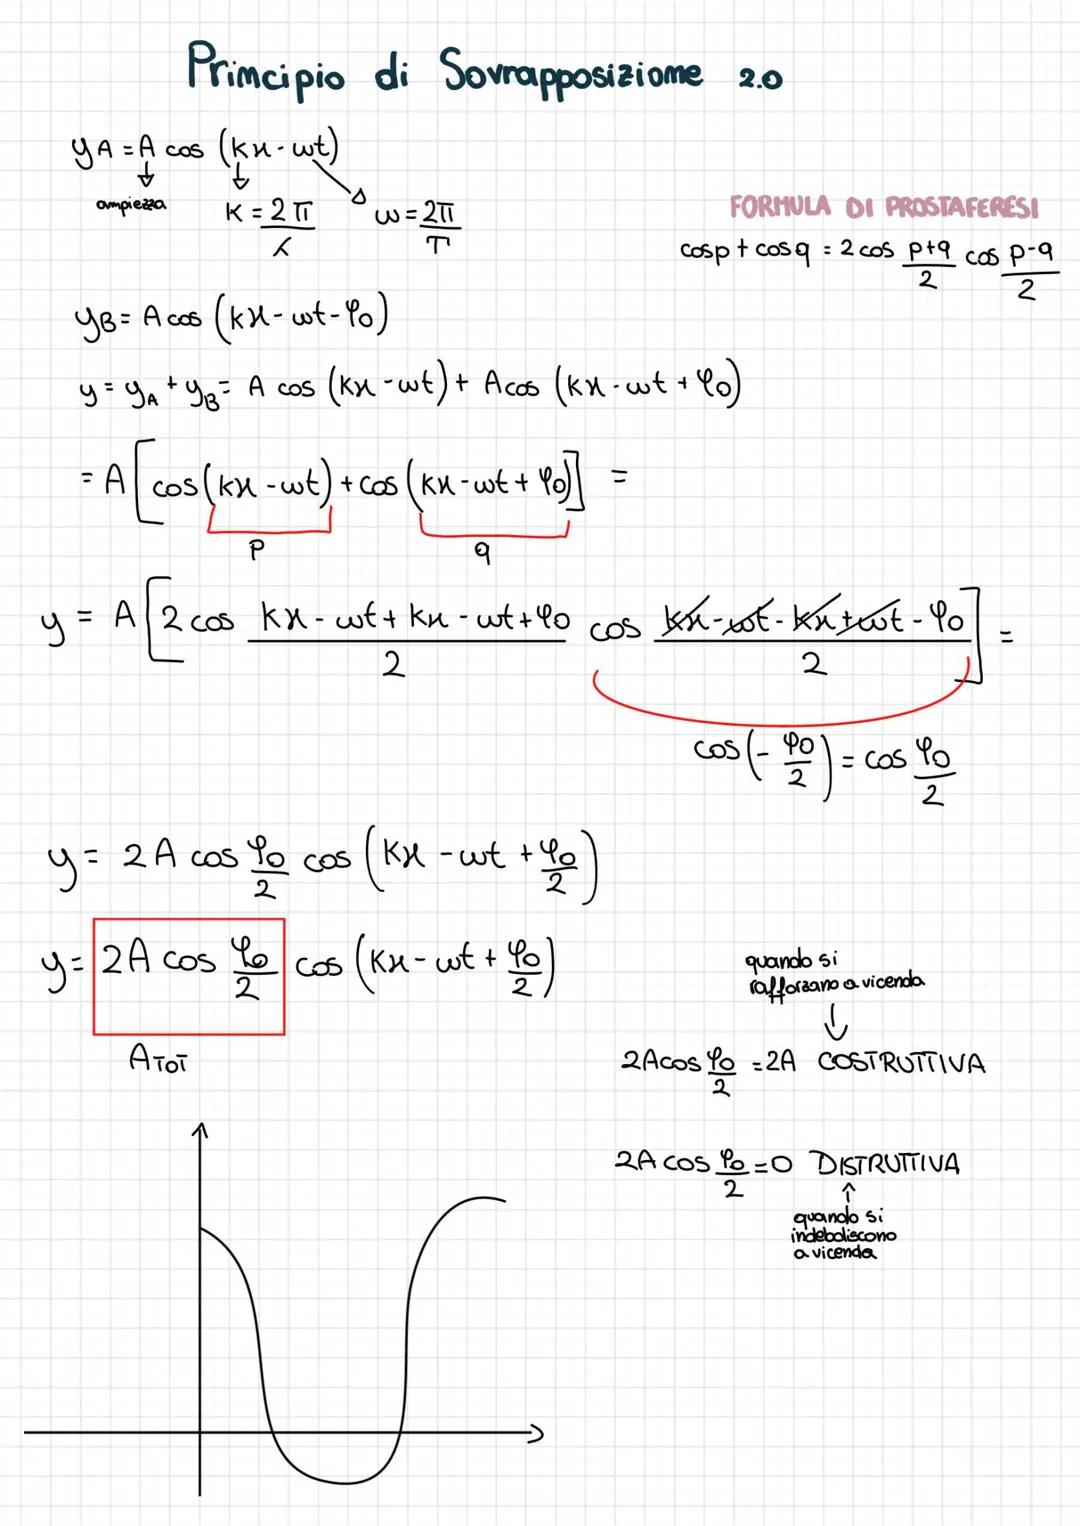 Principio di Sovrapposizione 2.0
yA = A cos (kx - ωt)
ampiezza
K = 2π/λ
ω = 2π/T
FORMULA DI PROSTAFERESI
cosp + cosq = 2 cos p+q/2 cos p-q/2
yB = A cos (kx - ωt - φ0)
y = yA + yB = A cos (kx - ωt) + A cos (kx - ωt + φ0)
= A [cos (kx - ωt) + cos (kx - ωt + φ0)] =
p
q
y = A [2 cos kx - ωt + kx - ωt + φ0/2 cos kx - ωt - kx + ωt - φ0/2] =
cos (- φ0/2) = cos φ0/2
y = 2A cos φ0/2 cos (kx - ωt + φ0/2)
y = 2A cos φ0/2 cos (kx - ωt + φ0/2)
ATOT
quando si
rafforzano a vicenda
2A cos φ0/2 = 2A COSTRUTTIVA
2A cos φ0/2 = 0 DISTRUTTIVA
quando si
indeboliscono
a vicenda